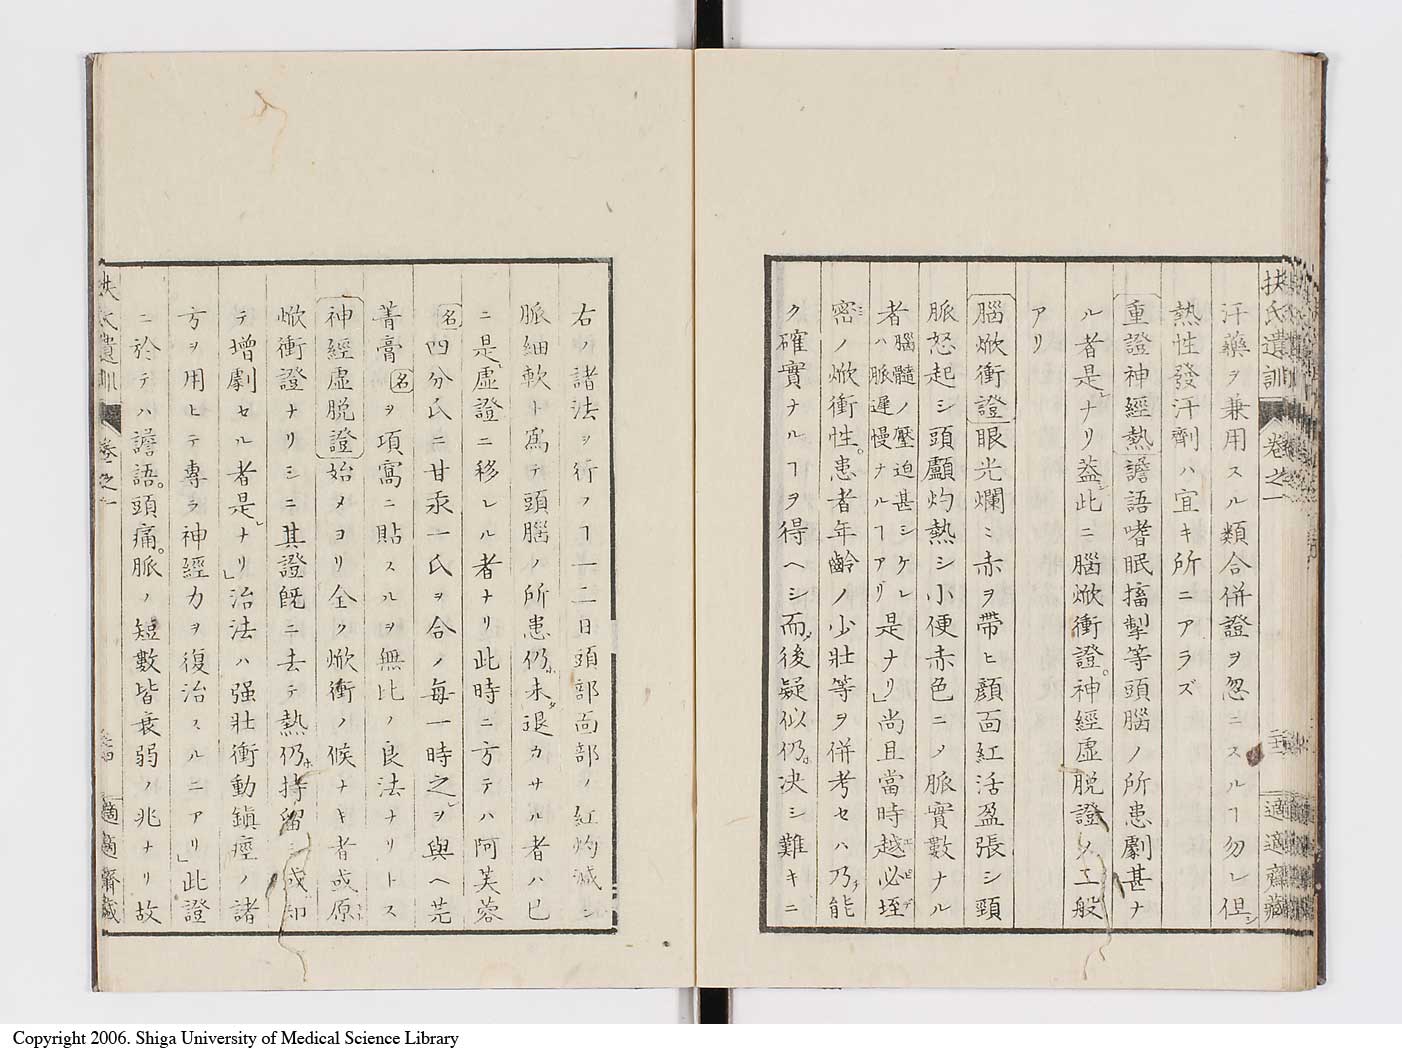 扶氏遺訓 卷之一 二十三 適適齋藏
汗藥ヲ兼用スル類合併證ヲ忽ニスルヿ勿レ但シ
熱性發汗劑ハ宜キ所ニアラズ
重證神經熱譫語嗜眠搐掣等頭腦ノ所患劇甚ナ
ル者是レナリ蓋シ此ニ腦焮衝證。神經虛脫證ノ二般
アリ
腦焮衝證眼光爛ミ赤ヲ帶ヒ顏面紅活盈張シ頸
脈怒起シ頭顱灼熱シ小便赤色ニノ脈實數ナル
者腦髓ノ壓迫甚シケレハ脈遲慢ナルヿアリ是ナリ」尚且當時越必垤
密ノ焮衝性。患者年齡ノ少壯等ヲ併考セハ乃チ能
ク確實ナルヿヲ得ヘシ而後疑似仍。決シ難キニ
右ノ諸法ヲ行フヿ一二日頭部面部ノ紅灼減シ
脈細軟ト爲テ頭腦ノ所患仍ホ未タ退カサル者ハ已
ニ是レ虛證ニ移レル者ナリ此時ニ方テハ阿芙蓉
名四分氏ニ甘汞一氏ヲ合ノ每一時之レヲ與ヘ芫
菁膏名ヲ項窩ニ貼スルヲ無比ノ良法ナリトス
神經虛脫證始メヨリ全ク焮衝ノ候ナキ者或原
焮衝證ナリシニ其證旣ニ去テ熱仍ホ持留シ或却
テ增劇セル者是レナリ」治法ハ强壯衝動鎭痙ノ諸
方ヲ用ヒテ專ラ神經力ヲ復治スルニアリ」此證
ニ於テハ譫語。頭痛。脈ノ短數皆衰弱ノ兆ナリ故
扶氏遺訓 卷之一 適適齋藏
Copyright 2006. Shiga University of Medical Science Library